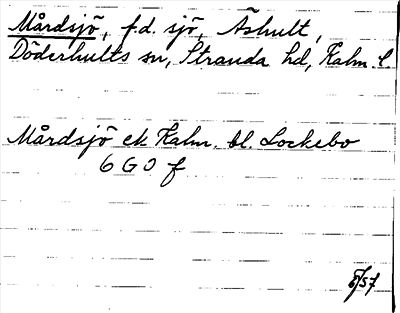 Mårdsjö, f.d. sjö, Äshult,
Döderhults sn, Stranda hd, Kalm. l.
Mårdsjö ek Kalm. bl. Lockebo
6 G 0 f
8/57